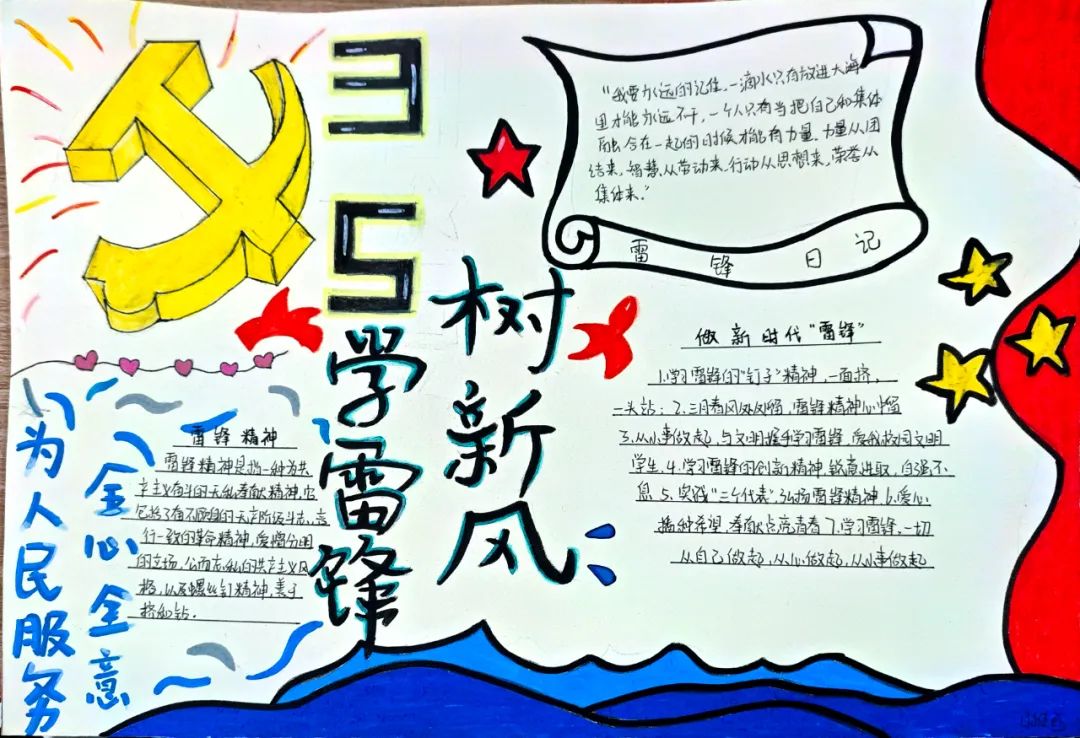 3
5
学雷锋
树新风
"我要永远的记住,一滴水只有放进大海
里才能永远不干,一个人只有当把自己和集体
融合在一起的时候才能有力量,力量从团
结来,智慧从劳动来,行动从思想来,荣誉从
集体来."
雷锋日记
做新时代"雷锋"
1.学习雷锋的"钉子"精神,一面挤,
一头钻;2.三月春风处处留,雷锋精神心中留
3.从小事做起,与文明握手学习雷锋,爱我校园文明
学生.4.学习雷锋的创新精神,锐意进取,自强不
息5.实践"三个代表"弘扬雷锋精神6.爱心
播种希望,奉献点亮青春7.学习雷锋,一切
从自己做起,从心做起,从小事做起
雷锋精神
雷锋精神是指一种为共
产主义奋斗的无私奉献精神,它
行一致的革命精神,爱憎分明
的立场,公而忘私的共产主义风
格,以及螺丝钉精神,善于
挤和钻.
全心全意
为人民服务